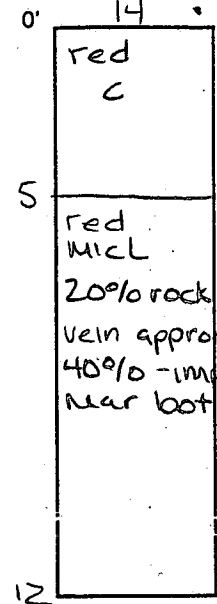 14
0'
red
C
5
red
MICL
20% rock
vein appro
40% -im
near bot
12